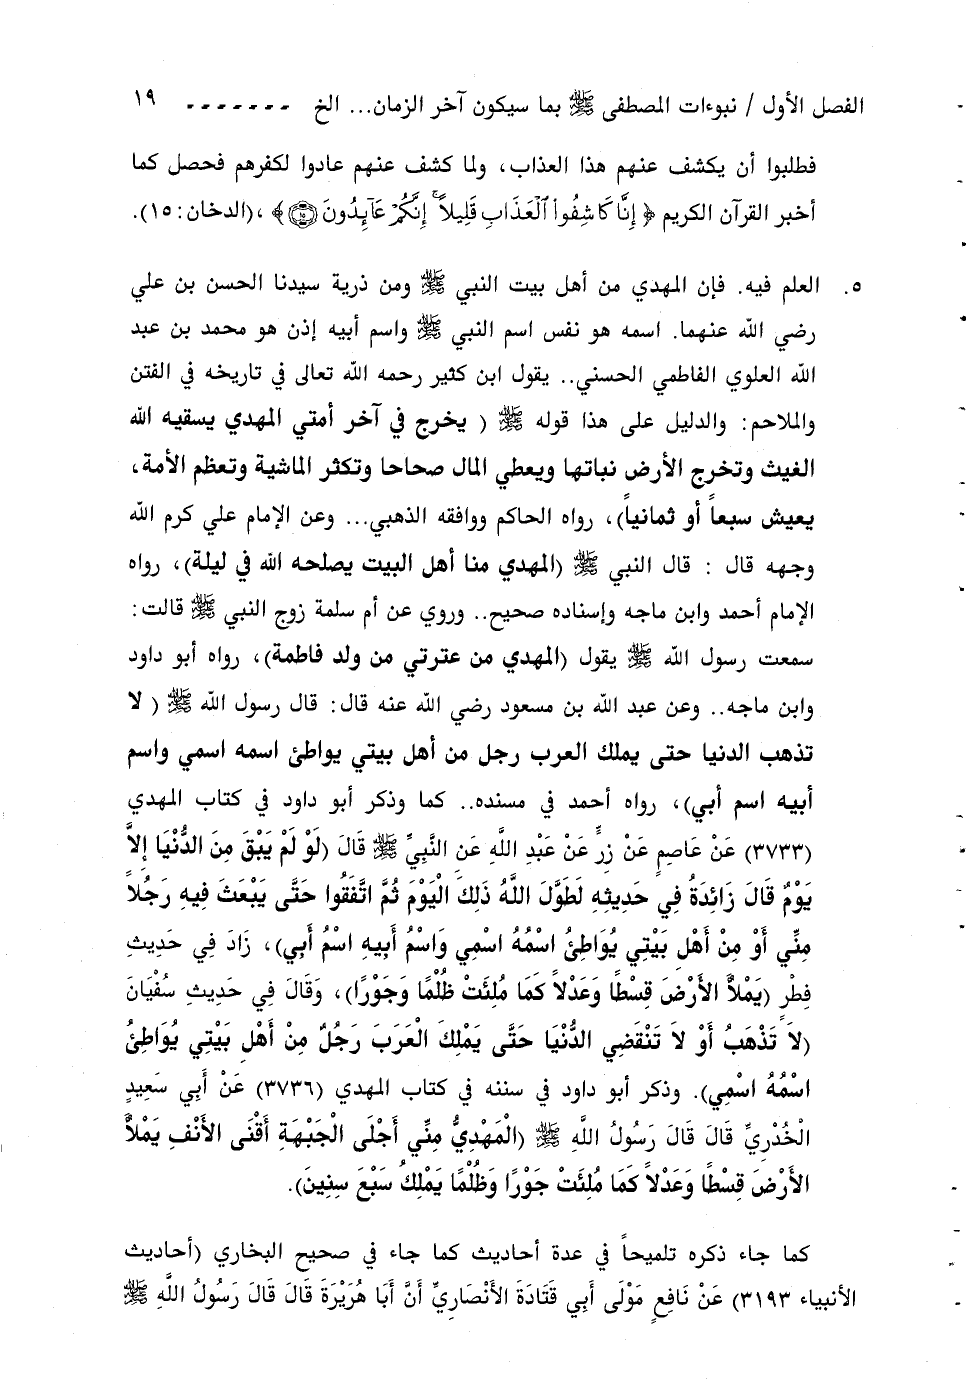 الفصل الأول / نبوءات المصطفى ﷺ بما سيكون آخر الزمان... الخ ------- ١٩
فطلبوا أن يكشف عنهم هذا العذاب، ولما كشف عنهم عادوا لكفرهم فحصل كما
أخبر القرآن الكريم ﴿ إِنَّا كَاشِفُوا۟ ٱلْعَذَابِ قَلِيلاً ۚ إِنَّكُمْ عَآئِدُونَ ۝١٥ ﴾ ،(الدخان: ١٥).
٥. العلم فيه. فإن المهدي من أهل بيت النبي ﷺ ومن ذرية سيدنا الحسن بن علي
رضي الله عنهما. اسمه هو نفس اسم النبي ﷺ واسم أبيه إذن هو محمد بن عبد
الله العلوي الفاطمي الحسني.. يقول ابن كثير رحمه الله تعالى في تاريخه في الفتن
والملاحم: والدليل على هذا قوله ﷺ ( يخرج في آخر أمتي المهدي يسقيه الله
الغيث وتخرج الأرض نباتها ويعطي المال صحاحا وتكثر الماشية وتعظم الأمة،
يعيش سبعاً أو ثمانياً)، رواه الحاكم ووافقه الذهبي... وعن الإمام علي كرم الله
وجهه قال : قال النبي ﷺ (المهدي منا أهل البيت يصلحه الله في ليلة)، رواه
الإمام أحمد وابن ماجه وإسناده صحيح.. وروي عن أم سلمة زوج النبي ﷺ قالت:
سمعت رسول الله ﷺ يقول (المهدي من عترتي من ولد فاطمة)، رواه أبو داود
وابن ماجه.. وعن عبد الله بن مسعود رضي الله عنه قال: قال رسول الله ﷺ ( لا
تذهب الدنيا حتى يملك العرب رجل من أهل بيتي يواطئ اسمه اسمي واسم
أبيه اسم أبي)، رواه أحمد في مسنده.. كما وذكر أبو داود في كتاب المهدي
(٣٧٣٣) عَنْ عَاصِمٍ عَنْ زِرٍّ عَنْ عَبْدِ اللَّهِ عَنِ النَّبِيِّ ﷺ قَالَ (لَوْ لَمْ يَبْقَ مِنَ الدُّنْيَا إِلاَّ
يَوْمٌ قَالَ زَائِدَةُ فِي حَدِيثِهِ لَطَوَّلَ اللَّهُ ذَلِكَ الْيَوْمَ ثُمَّ اتَّفَقُوا حَتَّى يَبْعَثَ فِيهِ رَجُلاً
مِنِّي أَوْ مِنْ أَهْلِ بَيْتِي يُوَاطِئُ اسْمُهُ اسْمِي وَاسْمُ أَبِيهِ اسْمُ أَبِي)، زَادَ فِي حَدِيثِ
فِطْرٍ (يَمْلأُ الأَرْضَ قِسْطًا وَعَدْلاً كَمَا مُلِئَتْ ظُلْمًا وَجَوْرًا)، وَقَالَ فِي حَدِيثِ سُفْيَانَ
(لاَ تَذْهَبُ أَوْ لاَ تَنْقَضِي الدُّنْيَا حَتَّى يَمْلِكَ الْعَرَبَ رَجُلٌ مِنْ أَهْلِ بَيْتِي يُوَاطِئُ
اسْمُهُ اسْمِي). وذكر أبو داود في سننه في كتاب المهدي (٣٧٣٦) عَنْ أَبِي سَعِيدٍ
الْخُدْرِيِّ قَالَ قَالَ رَسُولُ اللَّهِ ﷺ (الْمَهْدِيُّ مِنِّي أَجْلَى الْجَبْهَةِ أَقْنَى الأَنْفِ يَمْلأُ
الأَرْضَ قِسْطًا وَعَدْلاً كَمَا مُلِئَتْ جَوْرًا وَظُلْمًا يَمْلِكُ سَبْعَ سِنِينَ).
كما جاء ذكره تلميحاً في عدة أحاديث كما جاء في صحيح البخاري (أحاديث
الأنبياء ٣١٩٣) عَنْ نَافِعٍ مَوْلَى أَبِي قَتَادَةَ الأَنْصَارِيِّ أَنَّ أَبَا هُرَيْرَةَ قَالَ قَالَ رَسُولُ اللَّهِ ﷺ